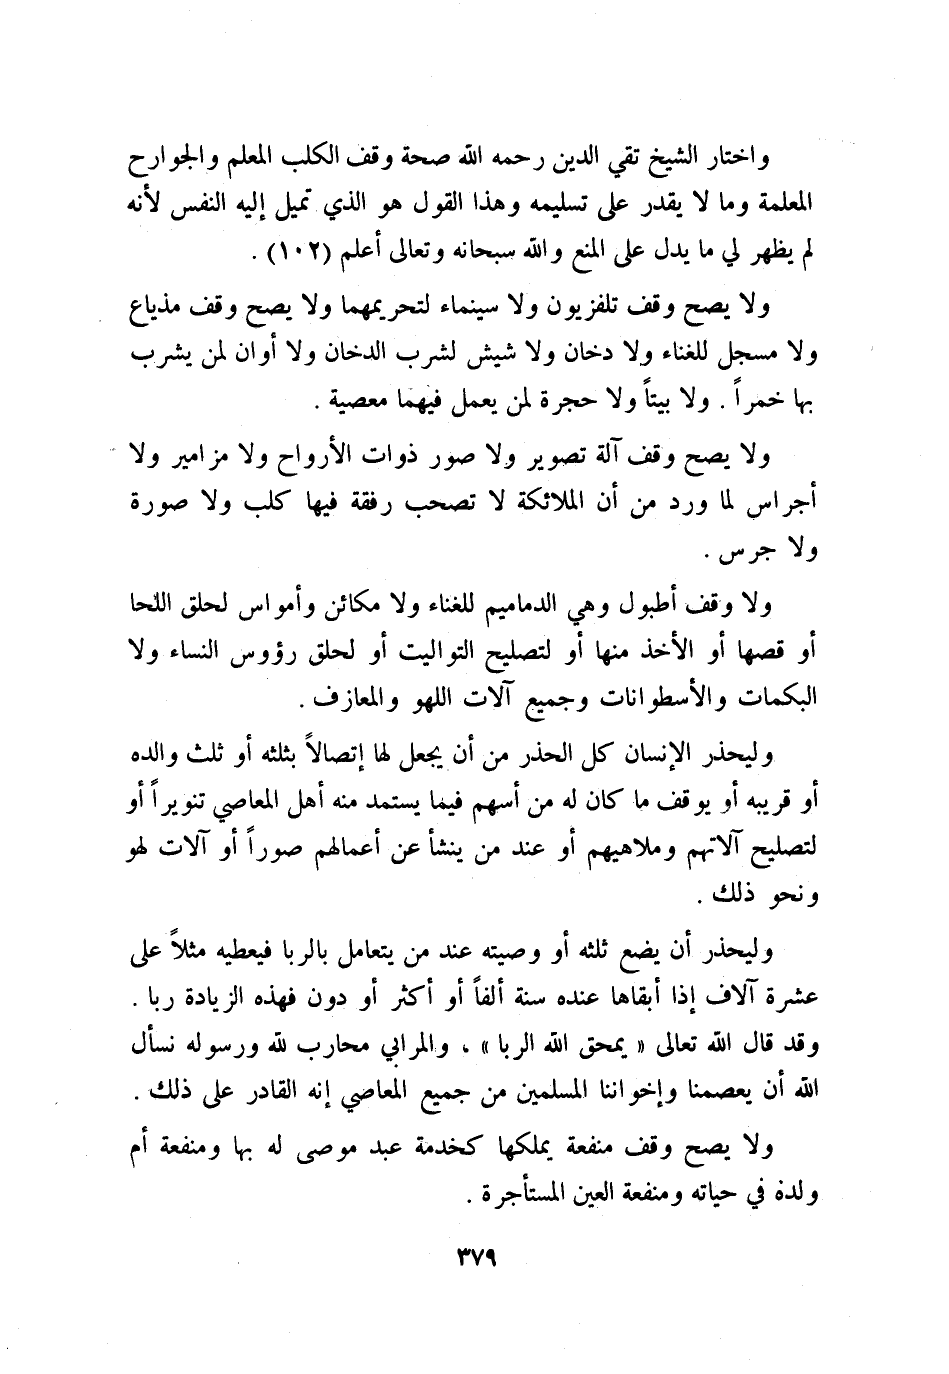 واختار الشيخ تقي الدين رحمه الله صحة وقف الكلب المعلم والجوارح
المعلمة وما لا يقدر على تسليمه وهذا القول هو الذي تميل إليه النفس لأنه
لم يظهر لي ما يدل على المنع والله سبحانه وتعالى أعلم (١٠٢) .
ولا يصح وقف تلفزيون ولا سينماء لتحريمهما ولا يصح وقف مذياع
ولا مسجل للغناء ولا دخان ولا شيش لشرب الدخان ولا أوان لمن يشرب
بها خمراً . ولا بيتاً ولا حجرة لمن يعمل فيهما معصية .
ولا يصح وقف آلة تصوير ولا صور ذوات الأرواح ولا مزامير ولا
أجراس لما ورد من أن الملائكة لا تصحب رفقة فيها كلب ولا صورة
ولا جرس .
ولا وقف أطبول وهي الدماميم للغناء ولا مكائن وأمواس لحلق اللحا
أو قصها أو الأخذ منها أو لتصليح التواليت أو لحلق رؤوس النساء ولا
البكمات والأسطوانات وجميع آلات اللهو والمعازف .
وليحذر الإنسان كل الحذر من أن يجعل لها إتصالاً بثلثه أو ثلث والده
أو قريبه أو يوقف ما كان له من أسهم فيما يستمد منه أهل المعاصي تنويراً أو
لتصليح آلاتهم وملاهيهم أو عند من ينشأ عن أعمالهم صوراً أو آلات لهو
ونحو ذلك .
وليحذر أن يضع ثلثه أو وصيته عند من يتعامل بالربا فيعطيه مثلاً على
عشرة آلاف إذا أبقاها عنده سنة ألفاً أو أكثر أو دون فهذه الزيادة ربا .
وقد قال الله تعالى « يمحق الله الربا » ، والمرابي محارب لله ورسوله نسأل
الله أن يعصمنا وإخواننا المسلمين من جميع المعاصي إنه القادر على ذلك .
ولا يصح وقف منفعة يملكها كخدمة عبد موصى له بها ومنفعة أم
ولده في حياته ومنفعة العين المستأجرة .
٣٧٩